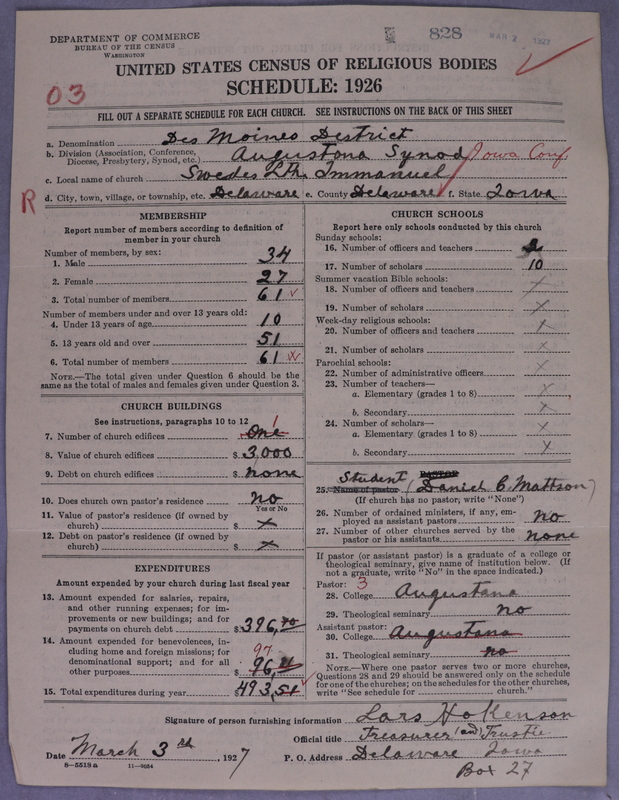 DEPARTMENT OF COMMERCE
BUREAU OF THE CENSUS
WASHINGTON
828
MAR 2 1927
UNITED STATES CENSUS OF RELIGIOUS BODIES
SCHEDULE: 1926
03
FILL OUT A SEPARATE SCHEDULE FOR EACH CHURCH. SEE INSTRUCTIONS ON THE BACK OF THIS SHEET
a. Denomination Des Moines District
b. Division (Association, Conference, Diocese, Presbytery, Synod, etc.) Augustana Synod Iowa Conf.
c. Local name of church Swedes Lth. Immanuel
R
d. City, town, village, or township, etc. Delaware e. County Delaware f. State Iowa
MEMBERSHIP
Report number of members according to definition of
member in your church
Number of members, by sex:
1. Male 34
2. Female 27
3. Total number of members 61
Number of members under and over 13 years old:
4. Under 13 years of age 10
5. 13 years old and over 51
6. Total number of members 61
NOTE.—The total given under Question 6 should be
same as the total of males and females given under Question 3.
CHURCH BUILDINGS
See instructions, paragraphs 10 to 12
7. Number of church edifices One 1
8. Value of church edifices $ 3,000
9. Debt on church edifices $ none
10. Does church own pastor's residence No
Yes or No
11. Value of pastor's residence (if owned by
church) $ x
12. Debt on pastor's residence (if owned by
church) $ x
EXPENDITURES
Amount expended by your church during last fiscal year
13. Amount expended for salaries, repairs,
and other running expenses; for im-
provements or new buildings; and for
payments on church debt $ 396,70
14. Amount expended for benevolences, in-
cluding home and foreign missions; for
denominational support; and for all
other purposes $ 96, 97
15. Total expenditures during year $ 493,51
CHURCH SCHOOLS
Report here only schools conducted by this church
Sunday schools:
16. Number of officers and teachers 2
17. Number of scholars 10
Summer vacation Bible schools:
18. Number of officers and teachers x
19. Number of scholars x
Week-day religious schools:
20. Number of officers and teachers x
21. Number of scholars x
Parochial schools:
22. Number of administrative officers x
23. Number of teachers—
a. Elementary (grades 1 to 8) x
b. Secondary x
24. Number of scholars—
a. Elementary (grades 1 to 8) x
b. Secondary x
PASTOR
Student
25. Name of pastor (Daniel C. Mattson)
(If church has no pastor; write "None")
26. Number of ordained ministers, if any, em-
ployed as assistant pastors No
27. Number of other churches served by the
pastor or his assistants none
If pastor (or assistant pastor) is a graduate of a college or
theological seminary, give name of institution below. (If
not a graduate, write "No" in the space indicated.)
Pastor: 3
28. College Augustana
29. Theological seminary no
Assistant pastor:
30. College Augustana
31. Theological seminary no
NOTE.—Where one pastor serves two or more churches,
Questions 28 and 29 should be answered only on the schedule
for one of the churches; on the schedules for the other churches,
write "See schedule for church."
Signature of person furnishing information Lars Hokenson
Official title Treasurer (and) Trustie
Date March 3rd, 1927 P. O. Address Delaware Iowa
Box 27
8—5518 a 11—9054